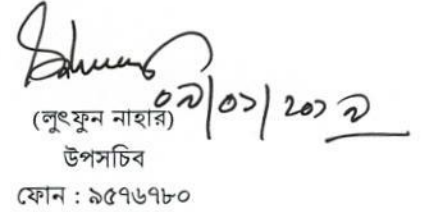 ০৯/০১/২০১৯
(লুৎফুন নাহার)
উপসচিব
ফোন : ৯৫৭৬৭৮০